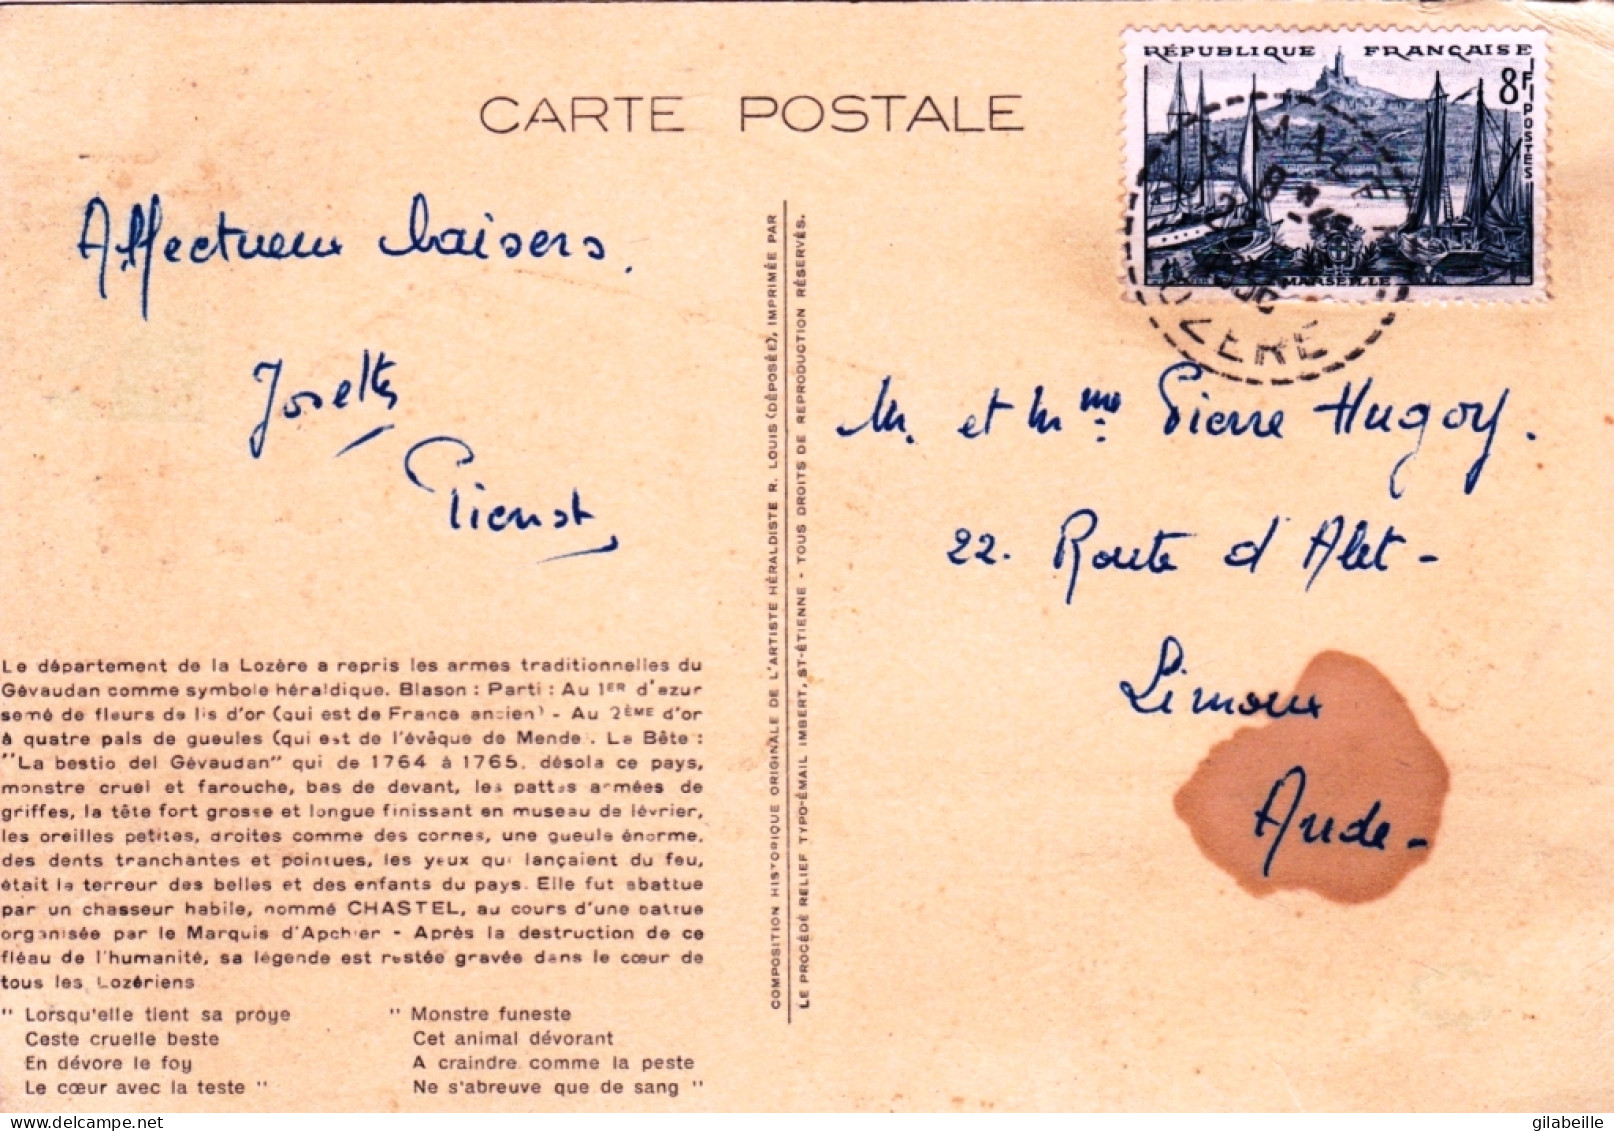 CARTE POSTALE
RÉPUBLIQUE FRANÇAISE
8F
POSTES
MARSEILLE
LA MALÈNE
LOZÈRE
Affectueux baisers.
Josette
M. et Mme Pierre Hugoy.
22. Route d'Alet -
Limoux
Aude -
COMPOSITION HISTORIQUE ORIGINALE DE L'ARTISTE HÉRALDISTE R. LOUIS (DÉPOSÉE), IMPRIMÉE PAR
LE PROCÉDÉ RELIEF TYPO-ÉMAIL IMBERT, ST-ÉTIENNE - TOUS DROITS DE REPRODUCTION RÉSERVÉS.
Le département de la Lozère a repris les armes traditionnelles du
Gévaudan comme symbole héraldique. Blason : Parti : Au 1ER d'azur
semé de fleurs de lis d'or (qui est de France ancien) - Au 2ÈME d'or
à quatre pals de gueules (qui est de l'évêque de Mende). La Bête :
"La bestio del Gévaudan" qui de 1764 à 1765, désola ce pays,
monstre cruel et farouche, bas de devant, les pattes armées de
griffes, la tête fort grosse et longue finissant en museau de lévrier,
les oreilles petites, droites comme des cornes, une gueule énorme,
des dents tranchantes et pointues, les yeux qui lançaient du feu,
était la terreur des belles et des enfants du pays. Elle fut abattue
par un chasseur habile, nommé CHASTEL, au cours d'une battue
organisée par le Marquis d'Apchier - Après la destruction de ce
fléau de l'humanité, sa légende est restée gravée dans le cœur de
tous les Lozériens
" Lorsqu'elle tient sa proye
Ceste cruelle beste
En dévore le foy
Le cœur avec la teste "
" Monstre funeste
Cet animal dévorant
A craindre comme la peste
Ne s'abreuve que de sang "
gilabeille